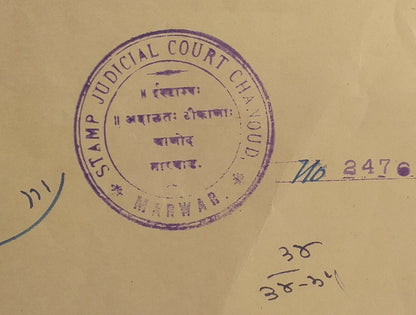 STAMP JUDICIAL COURT CHANOUD.
॥ ईस्टाम्प:
॥ अदालत: ठीकाणा:
चाणोद
मारवाड.
* MARWAR. *
No 2476
३४
३४-३५